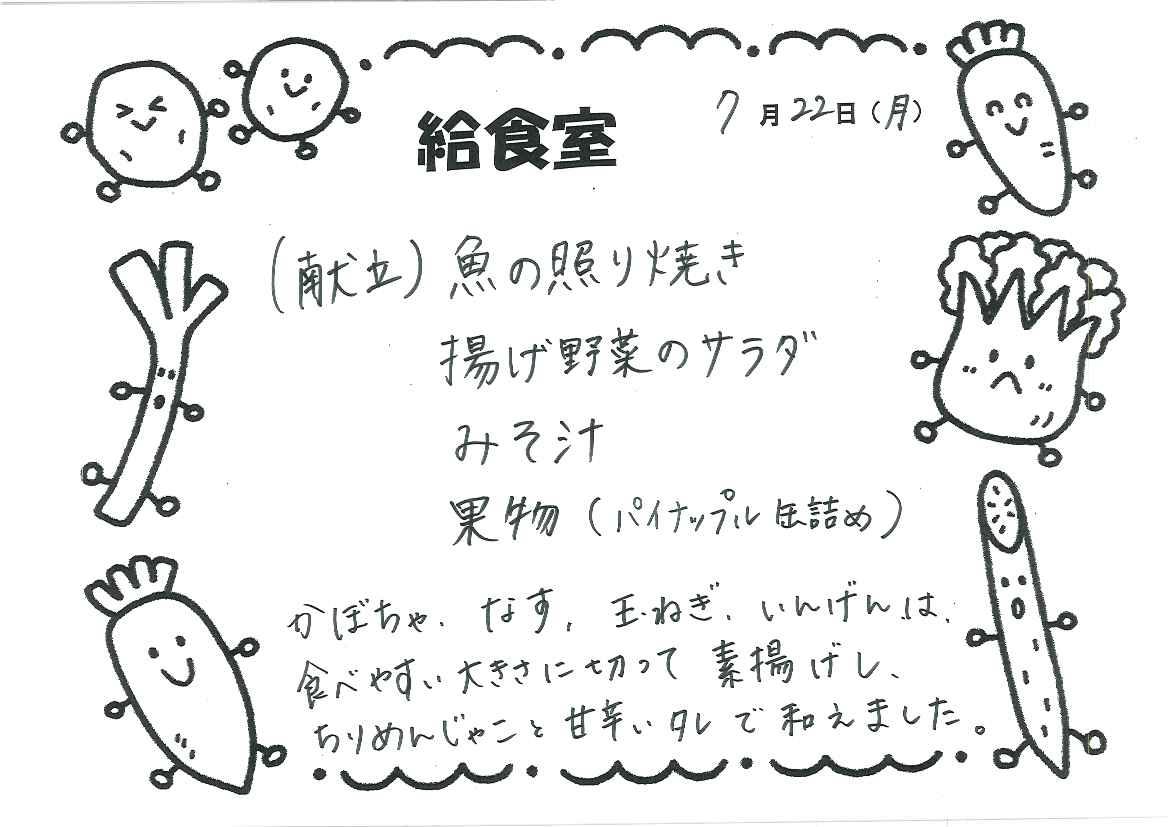 給食室
7月22日(月)
(献立)魚の照り焼き
揚げ野菜のサラダ
みそ汁
果物(パイナップル缶詰め)
かぼちゃ、なす、玉ねぎ、いんげんは、
食べやすい大きさに切って素揚げし、
ちりめんじゃこと甘辛いタレで和えました。